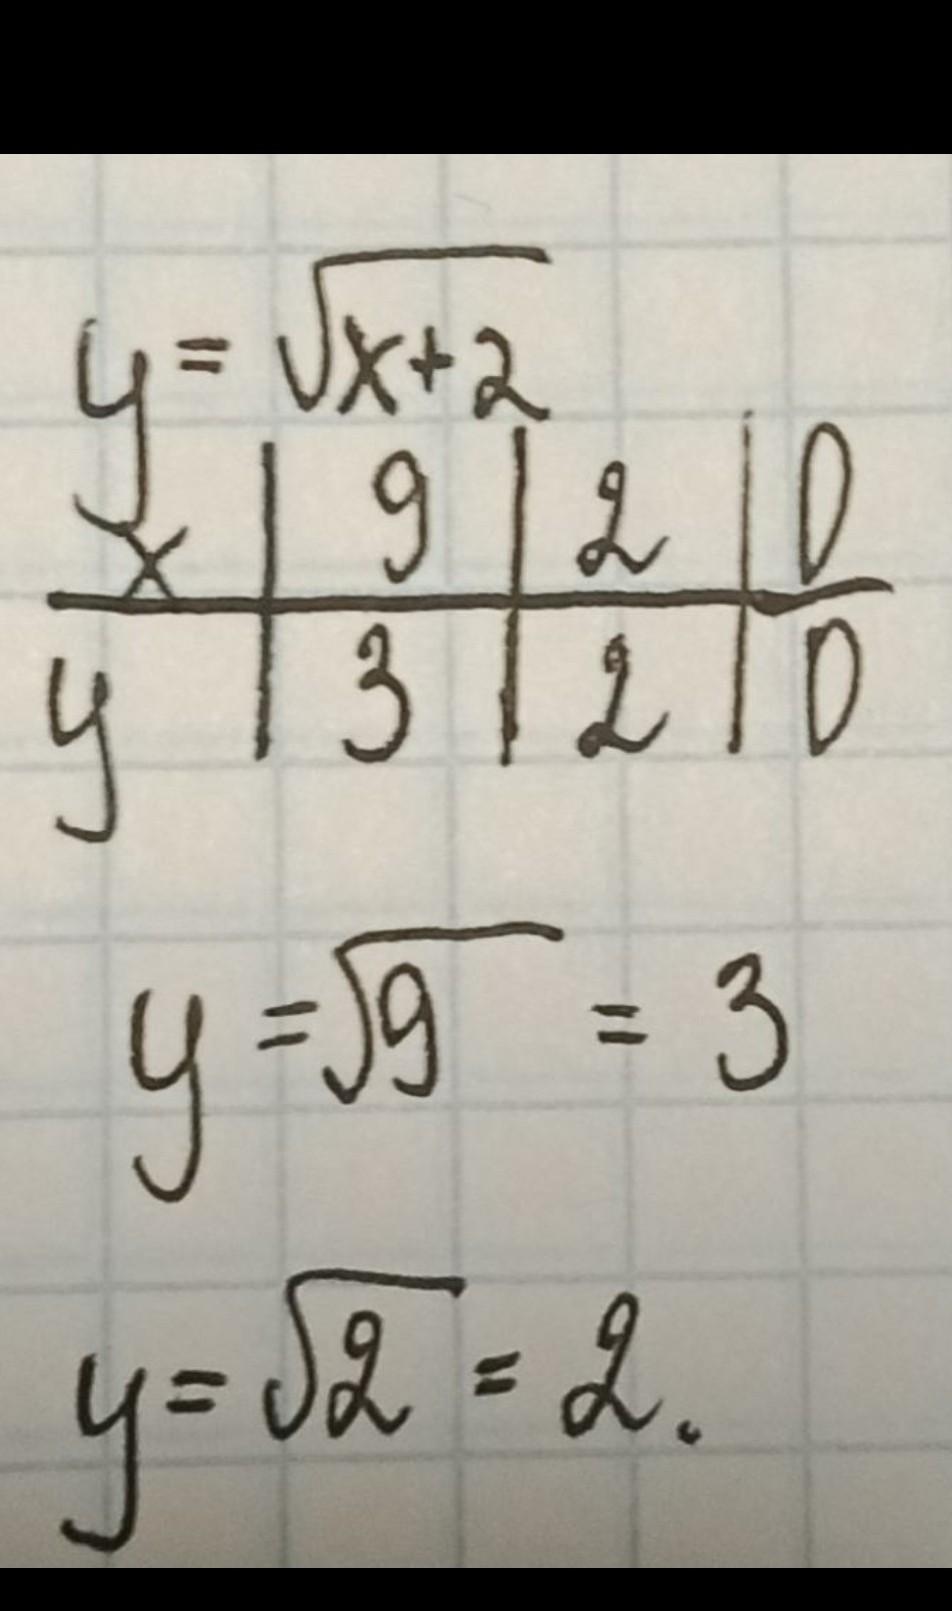 y = √x+2
x | 9 | 2 | 0
y | 3 | 2 | 0
y = √9 = 3
y = √2 = 2.